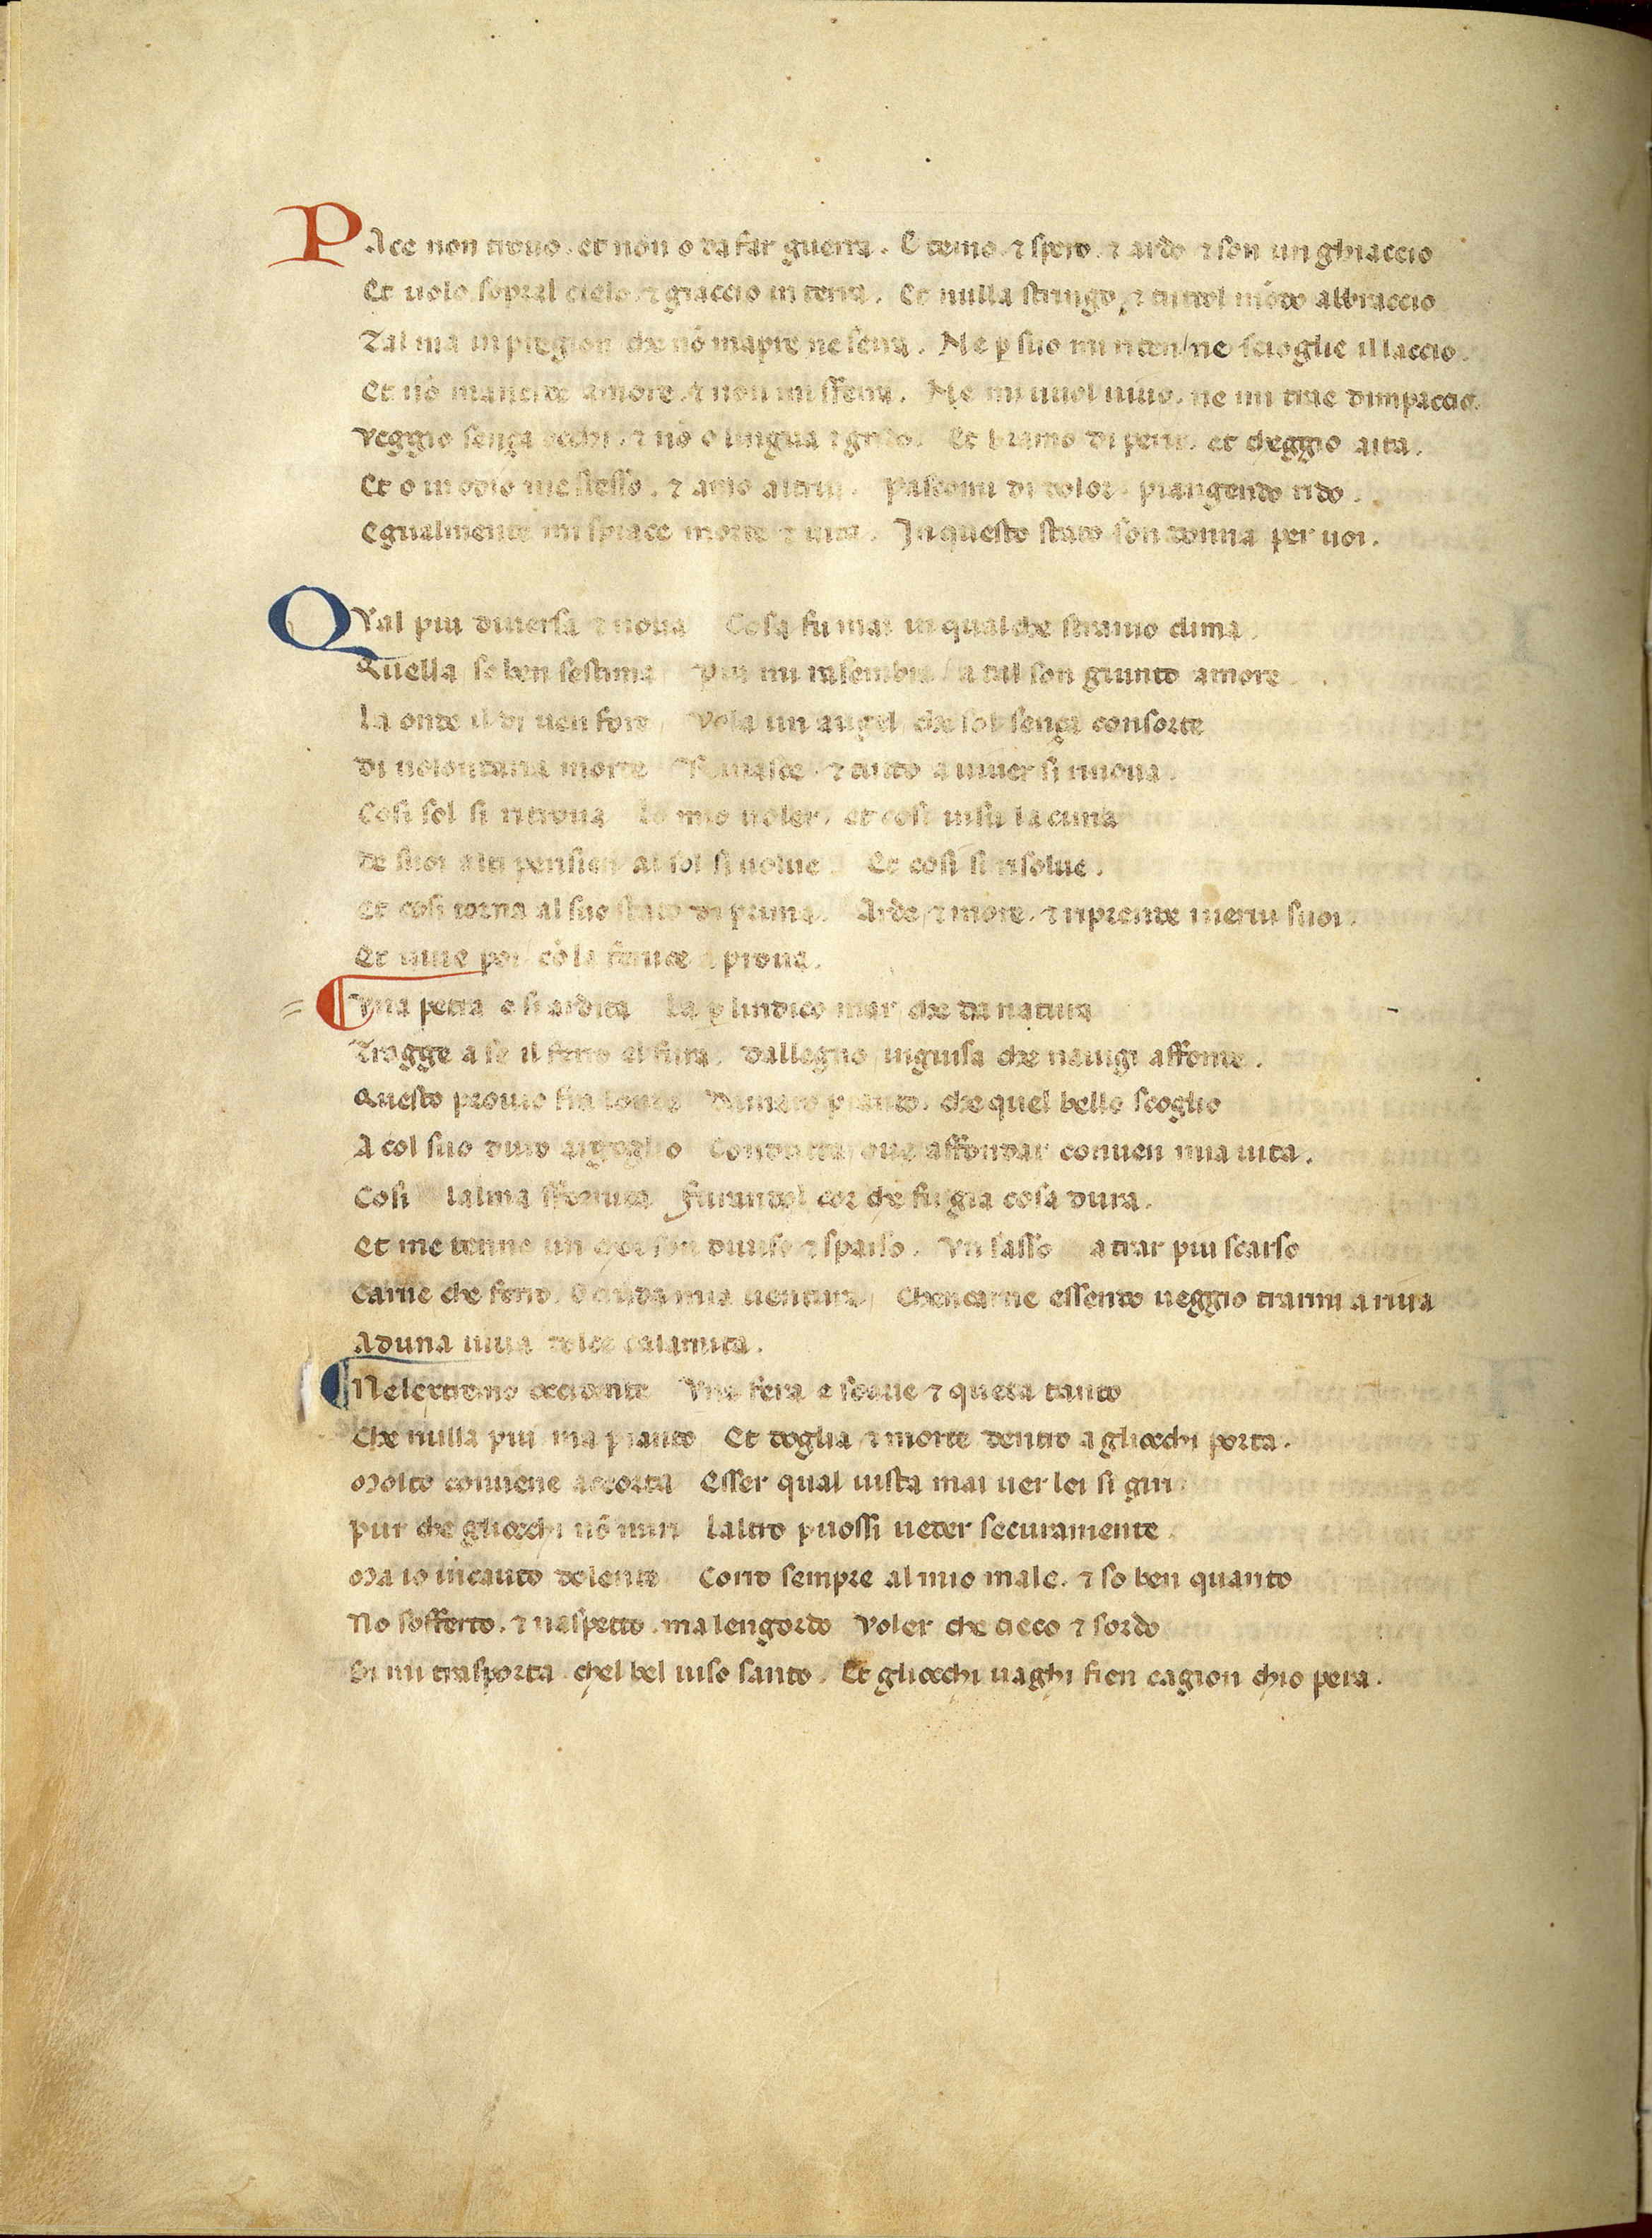 PAce non trouo. et non o da far guerra. E temo. ⁊ spero. ⁊ ardo ⁊ son un ghiaccio
Et uolo sopral cielo. ⁊ giaccio in terra. Et nulla stringo. ⁊ tuttol mōdo abbraccio
Tal ma in pregion che nō mapre ne serra. Ne ꝑ suo mi riten / ne scioglie il laccio.
Et nō mancide amore. ⁊ non mi sferra. Ne mi uuol uiuo. ne mi trae dimpaccio.
Veggio senza occhi. ⁊ nō o lingua ⁊ grido. Et bramo di perir. et cheggio aita.
Et o in odio me stesso. ⁊ amo altrui. Pascomi di dolor. piangendo rido.
Egualmente mi spiace morte ⁊ uita. In questo stato son donna per uoi.
QVal piu diuersa ⁊ noua Cosa fu mai in qualche stranio clima
Quella se ben sestima Piu mi rasembra / a tal son giunto amore
La onde il di uen fore / Vola un augel / che sol senza consorte
Di uolontaria morte Rinasce. ⁊ tutto a uiuer si rinoua.
Cosi sol si ritroua Lo mio uoler. et cosi insu la cima
De suoi alti pensieri al sol si uolue. Et cosi si risolue.
Et cosi torna al suo stato di prima. Arde / ⁊ more. ⁊ riprende inerui suoi.
Et uiue poi cō la fenice a proua.
Vna petra e si ardita La ꝑ lindico mar / che da natura
Tragge a se il ferro el fura. Dallegno / inguisa che nauigi affonde.
Questo prouo fra londe Damaro pianto. che quel bello scoglio
A col suo duro argoglio Condutta oue affondar conuen mia uita.
Cosi lalma sfornita Furandol cor che fu gia cosa dura.
Et me tenne un chor son diuiso ⁊ sparso. Vn sasso a trar piu scarso
Carne che ferro. O cruda mia uentura / Chencarne essendo ueggio trarmi a riua
Aduna uiua dolce calamita.
Nelextremo occidente Vna fera e soaue ⁊ queta tanto
Che nulla piu ma pianto Et doglia / ⁊ morte dentro a gliocchi porta.
Molto conuene accorta Esser qual uista mai uer lei si giri
Pur che gliocchi nō miri Laltro puossi ueder securamente
Ma io incauto dolente Corro sempre al mio male. ⁊ so ben quanto
No sofferto. ⁊ naspetto. ma lengordo Voler che cieco ⁊ sordo
Si mi trasporta chel bel uiso santo. Et gliocchi uaghi fien cagion chio pera.